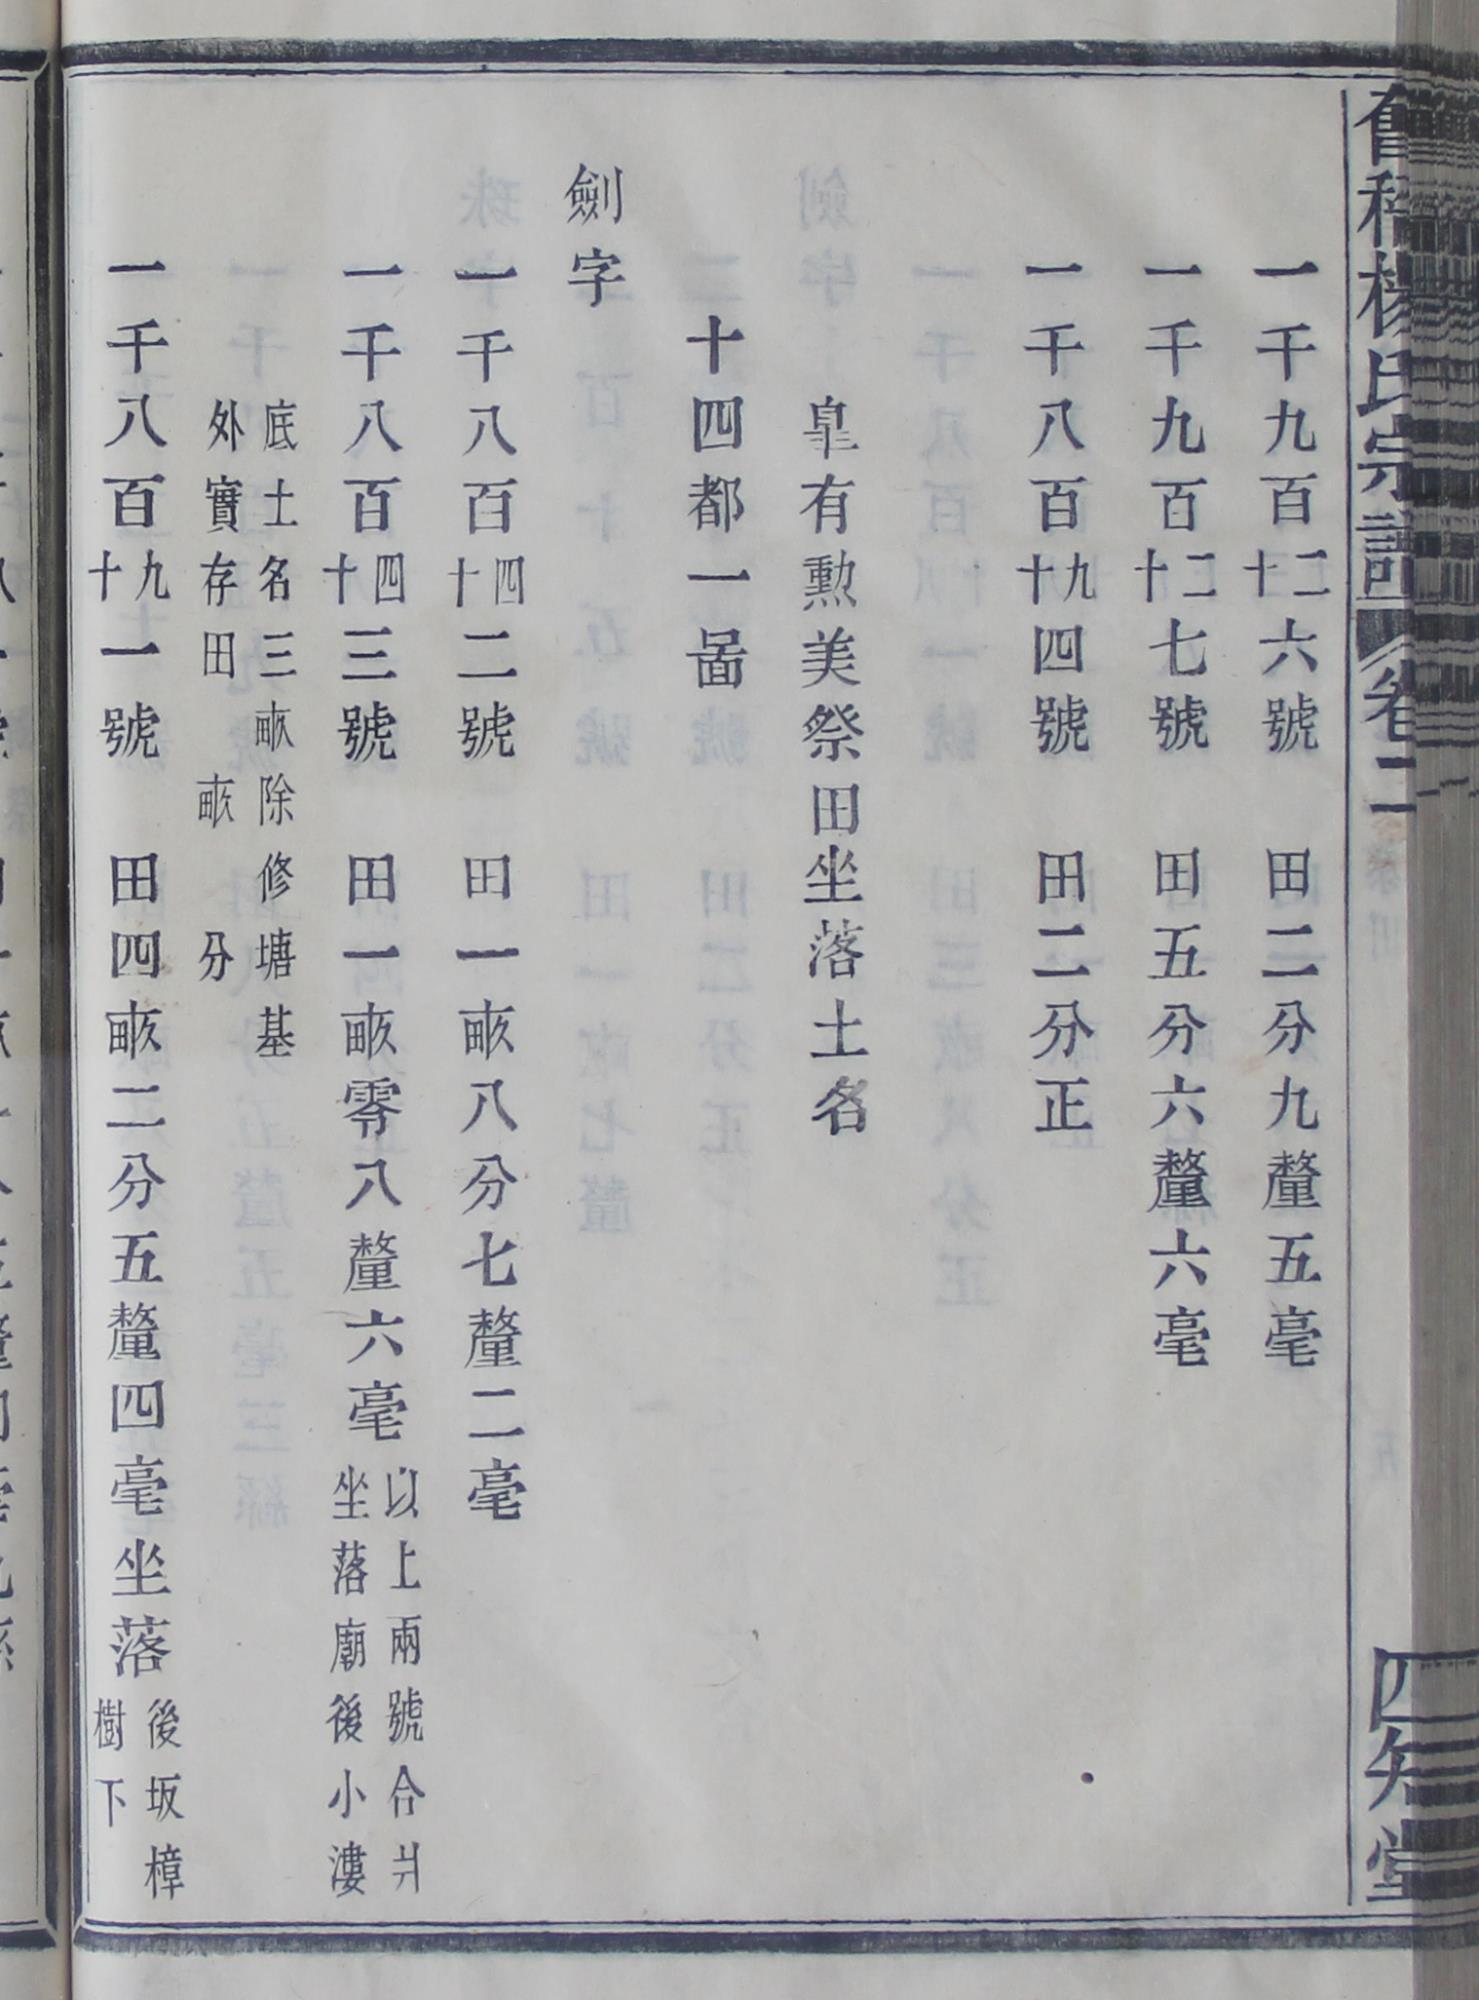 楊氏宗譜 卷二 四知堂
一千九百二十六號 田二分九釐五毫
一千九百二十七號 田五分六釐六毫
一千八百九十四號 田二分正
皐有勲美祭田坐落土名
十四都一啚
劍字
一千八百四十二號 田一畝八分七釐二毫
一千八百四十三號 田一畝零八釐六毫 以上兩號合爿
坐落廟後小漊
底土名三畝除修塘基
外實存田 畝 分
一千八百九十一號 田四畝二分五釐四毫坐落 後坂樟
樹下